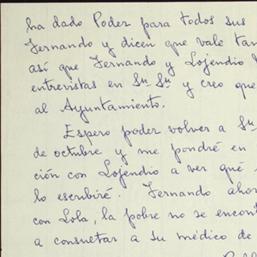 ha dado Poder para todos sus
Fernando y dicen que vale tam
así que Fernando y Lojendio
entrevistas en Sn Sn y creo que
al Ayuntamiento.
Espero poder volver a Sn
de octubre y me pondré en
ción con Lojendio a ver qué
lo escribiré. Fernando ahor
con Lola, la pobre no se encont
a consultar a su médico de